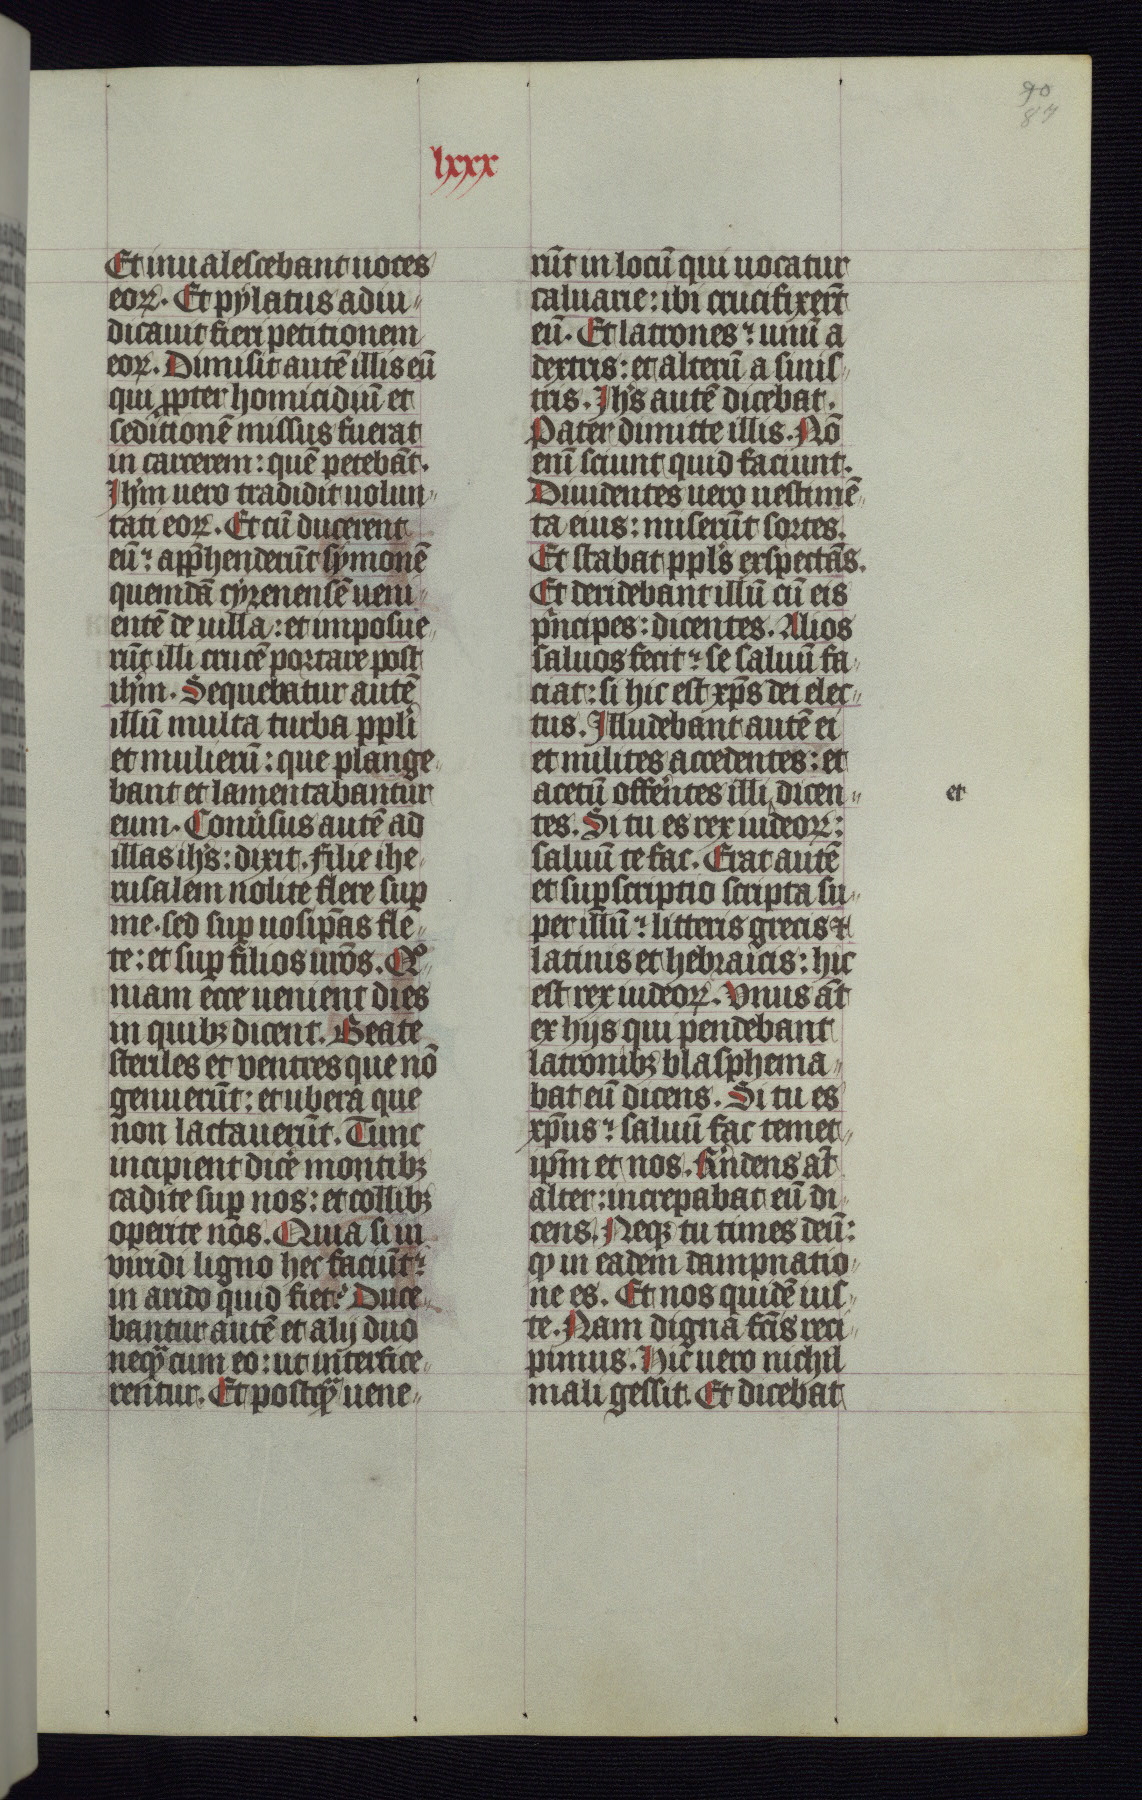 90
87
lxxx
Et inualescebant uoces
eoꝝ. Et pylatus adiu-
dicauit fieri petitionem
eoꝝ. Dimisit autē illis eū
qui ꝓpter homicidiū et
seditionē missus fuerat
in carcerem: quē petebāt.
Ihm̄ uero tradidit uolun-
tati eoꝝ. Et cū ducerent
eū: app̄henderūt symonē
quemdā cyrenensē ueni-
entē de uilla: et imposue-
rūt illi crucē portare post
ihm̄. Sequebatur autē
illū multa turba ppl̄i
et mulierū: que plange-
bant et lamentabantur
eum. Conũsus autē ad
illas ihs̄: dixit. Filie ihe-
rusalem nolite flere suꝑ
me. sed suꝑ uosip̄as fle-
te: et suꝑ filios ur̄os. Qͦ-
niam ecce uenient dies
in quibꝫ dicent. Beate
steriles et ventres que nō
genuerūt: et ubera que
non lactauerūt. Tunc
incipient dicē montibꝫ
cadite suꝑ nos: et collibꝫ
operite nos. Quia si in
viridi ligno hec faciūt:
in arido quid fiet? Duce-
bantur autē et alij duo
neqͣ̄ cum eo: ut interfice-
rentur. Et postqͣ̄ uene-
rūt in locū qui uocatur
caluarie: ibi crucifixer̄t
eū. Et latrones: unū a
dextris: et alterū a sinis-
tris. Ihs̄ autē dicebat.
Pater dimitte illis. Nō
enī sciunt quid faciunt.
Diuidentes uero uestimē-
ta eius: miserūt sortes.
Et stabat ppl̄s exspectās.
Et deridebant illū cū eis
pͥncipes: dicentes. Alios
saluos fecit: se saluū fa-
ciat: si hic est xp̄s dei elec-
tus. Illudebant autē ei
et milites accedentes: et
acetū offerentes illi dicen-
et
tes. Si tu es rex iudeoꝝ:
saluū te fac. Erat autē
et suꝑscriptio scripta su-
per illū: litteris grecis ⁊
latinis et hebraicis: hic
est rex iudeoꝝ. Vnus āt
ex hijs qui pendebant
latronibꝫ blasphema-
bat eū dicens. Si tu es
xp̄us: saluū fac temet-
ip̄m et nos. Rn̄dens āt
alter: increpabat eū di-
cens. Neqꝫ tu times deū:
ꝙ in eadem dampnatio-
ne es. Et nos quidē ius-
te. Nam digna fc̄is reci-
pimus. Hic uero nichil
mali gessit. Et dicebat